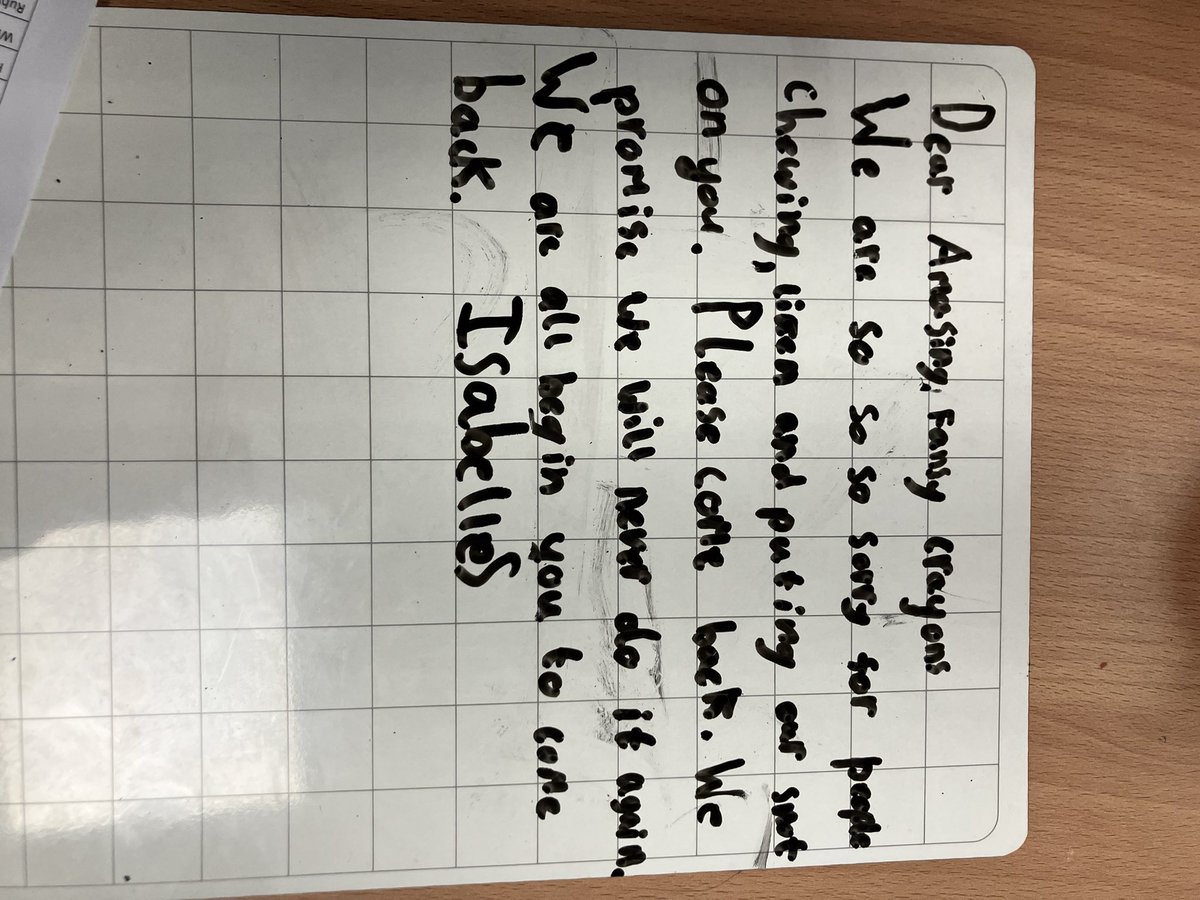 Dear Amasing, Fansy crayons
We are so so so sorry for people
chewing, liten and puting our snot
on you. Please come back. We
promise we will never do it again.
We are all begin you to come
back. Isabelles